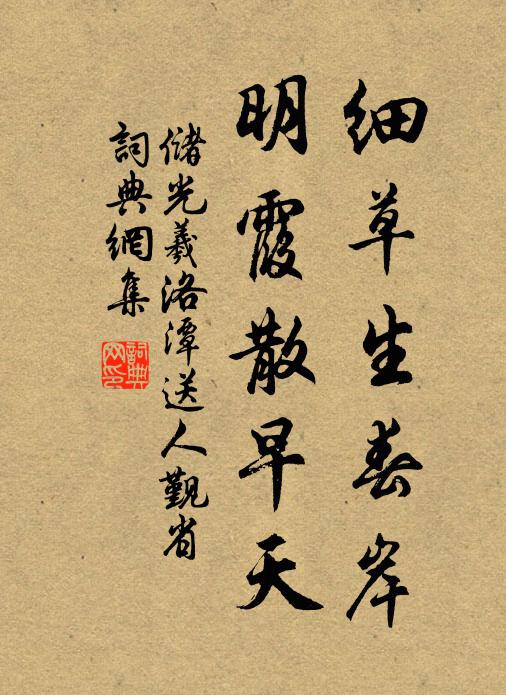 细草生春岸
明霞散早天
儲光羲洛潭送人觐省
詞典網集
詞典网印